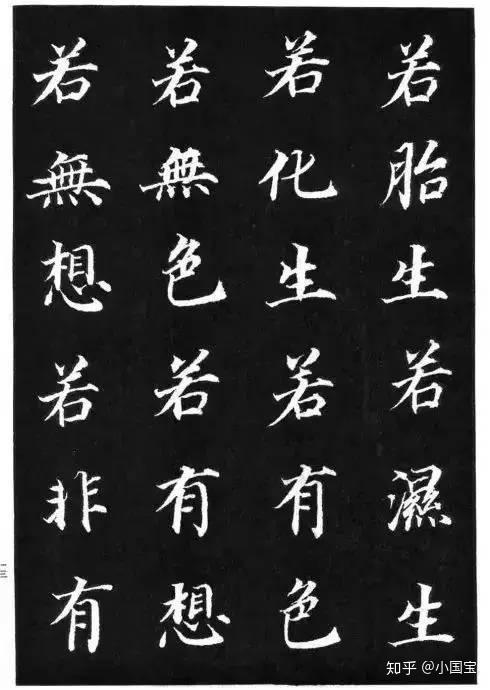 若胎生若濕生
若化生若有色
若無色若有想
若無想若非有
知乎 @小国宝